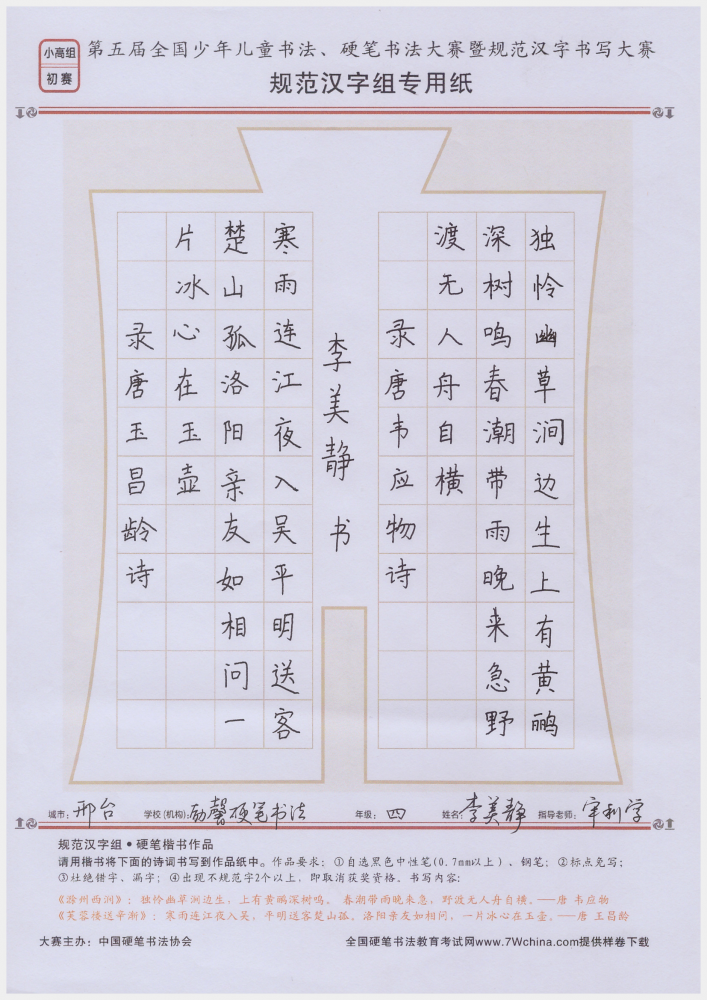 小高组
初赛
第五届全国少年儿童书法、硬笔书法大赛暨规范汉字书写大赛
规范汉字组专用纸
独怜幽草涧边生上有黄鹂
深树鸣春潮带雨晚来急野
渡无人舟自横
录唐韦应物诗
李美静书
寒雨连江夜入吴平明送客
楚山孤洛阳亲友如相问一
片冰心在玉壶
录唐玉昌龄诗
城市：邢台 学校(机构)：励馨硬笔书法 年级：四 姓名：李美静 指导老师：
规范汉字组•硬笔楷书作品
请用楷书将下面的诗词书写到作品纸中。作品要求：①自选黑色中性笔(0.7mm以上)、钢笔；②标点免写；
③杜绝错字、漏字；④出现不规范字2个以上，即取消获奖资格。书写内容：
《滁州西涧》：独怜幽草涧边生，上有黄鹂深树鸣。 春潮带雨晚来急，野渡无人舟自横。——唐 韦应物
《芙蓉楼送辛渐》：寒雨连江夜入吴，平明送客楚山孤。洛阳亲友如相问，一片冰心在玉壶。——唐 王昌龄
大赛主办：中国硬笔书法协会 全国硬笔书法教育考试网www.7Wchina.com提供样卷下载